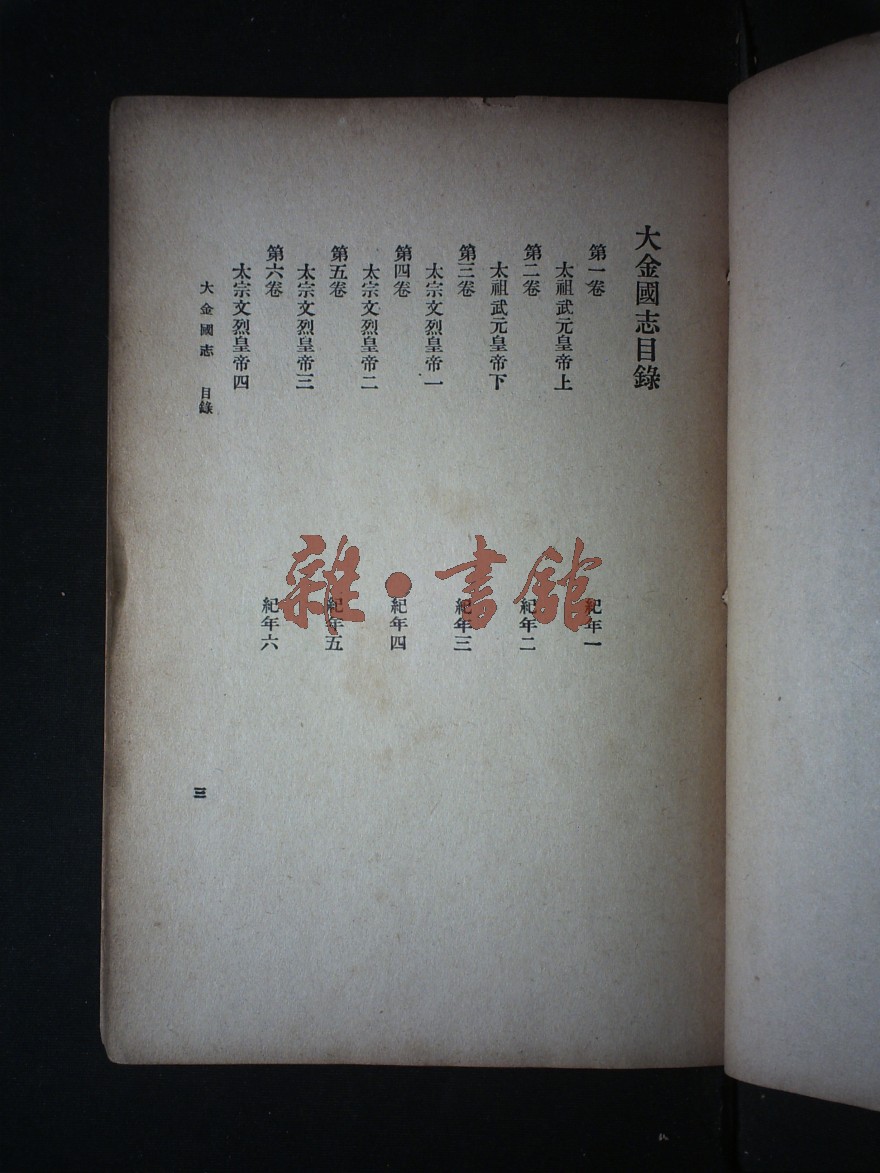 大金國志目錄
第一卷 紀年一
太祖武元皇帝上
第二卷 紀年二
太祖武元皇帝下
第三卷 紀年三
太宗文烈皇帝一
第四卷 紀年四
太宗文烈皇帝二
第五卷 紀年五
太宗文烈皇帝三
第六卷 紀年六
太宗文烈皇帝四
大金國志 目錄
三
雜·書館